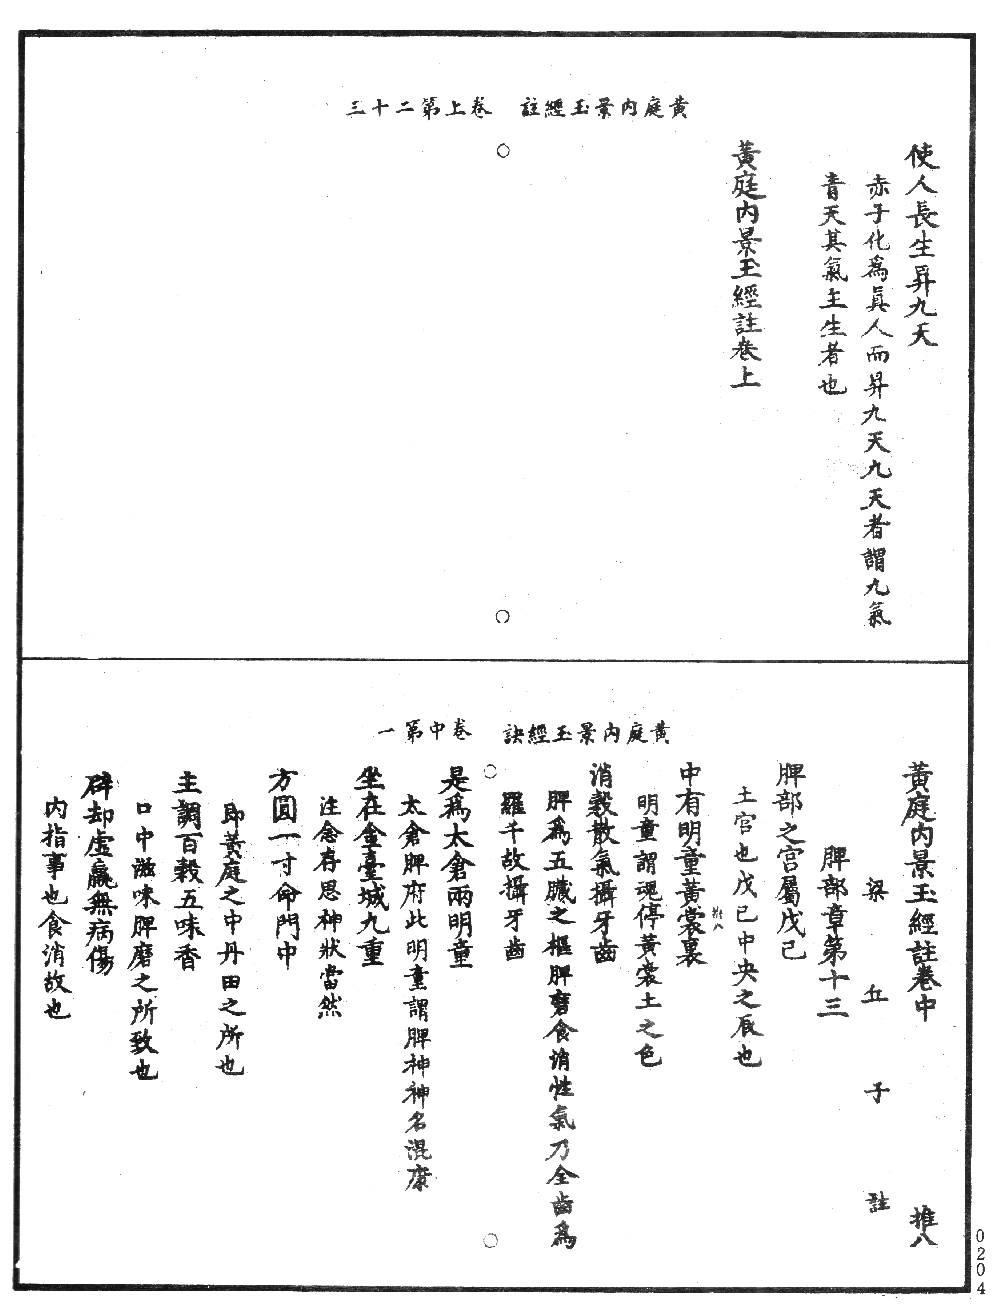 黃庭內景玉經註　卷上第二十三
使人長生昇九天
赤子化爲眞人而昇九天九天者謂九氣
青天其氣主生者也
黃庭內景玉經註卷上
黃庭內景玉經訣　卷中第一
黃庭內景玉經註卷中　推八
梁丘子註
脾部章第十三
脾部之宮屬戊己
土宮也戊己中央之辰也
中有明童黃裳裏
明童謂魂停黃裳土之色
消穀散氣攝牙齒
脾爲五臟之樞脾磨食消性氣乃全齒爲
羅千故攝牙齒
是爲太倉兩明童
太倉脾府此明童謂脾神神名混康
坐在金臺城九重
注念存思神狀當然
方圓一寸命門中
即黃庭之中丹田之所也
主調百穀五味香
口中滋味脾磨之所致也
辟却虛羸無病傷
內指事也食消故也
0204